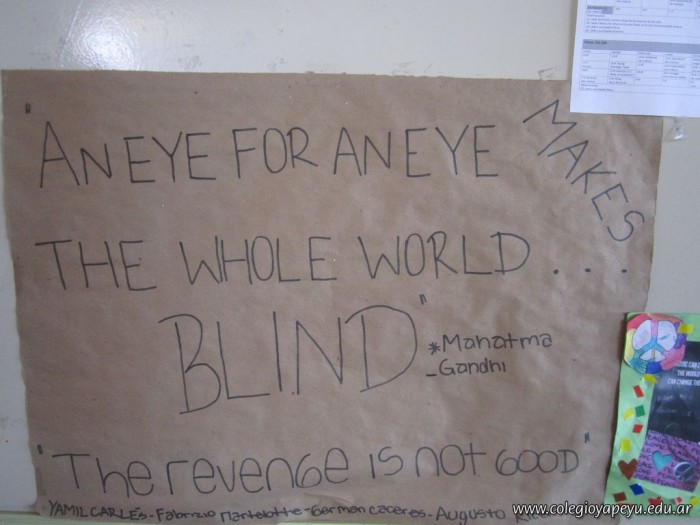 "AN EYE FOR AN EYE MAKES
THE WHOLE WORLD...
BLIND" *Mahatma
-Gandhi
"The revenge is not GOOD"
YAMIL CARLES - Fabrizio Martelotte - German caceres - Augusto
THE WORLD
CAN CHANGE THE
www.colegioyapeyu.edu.ar